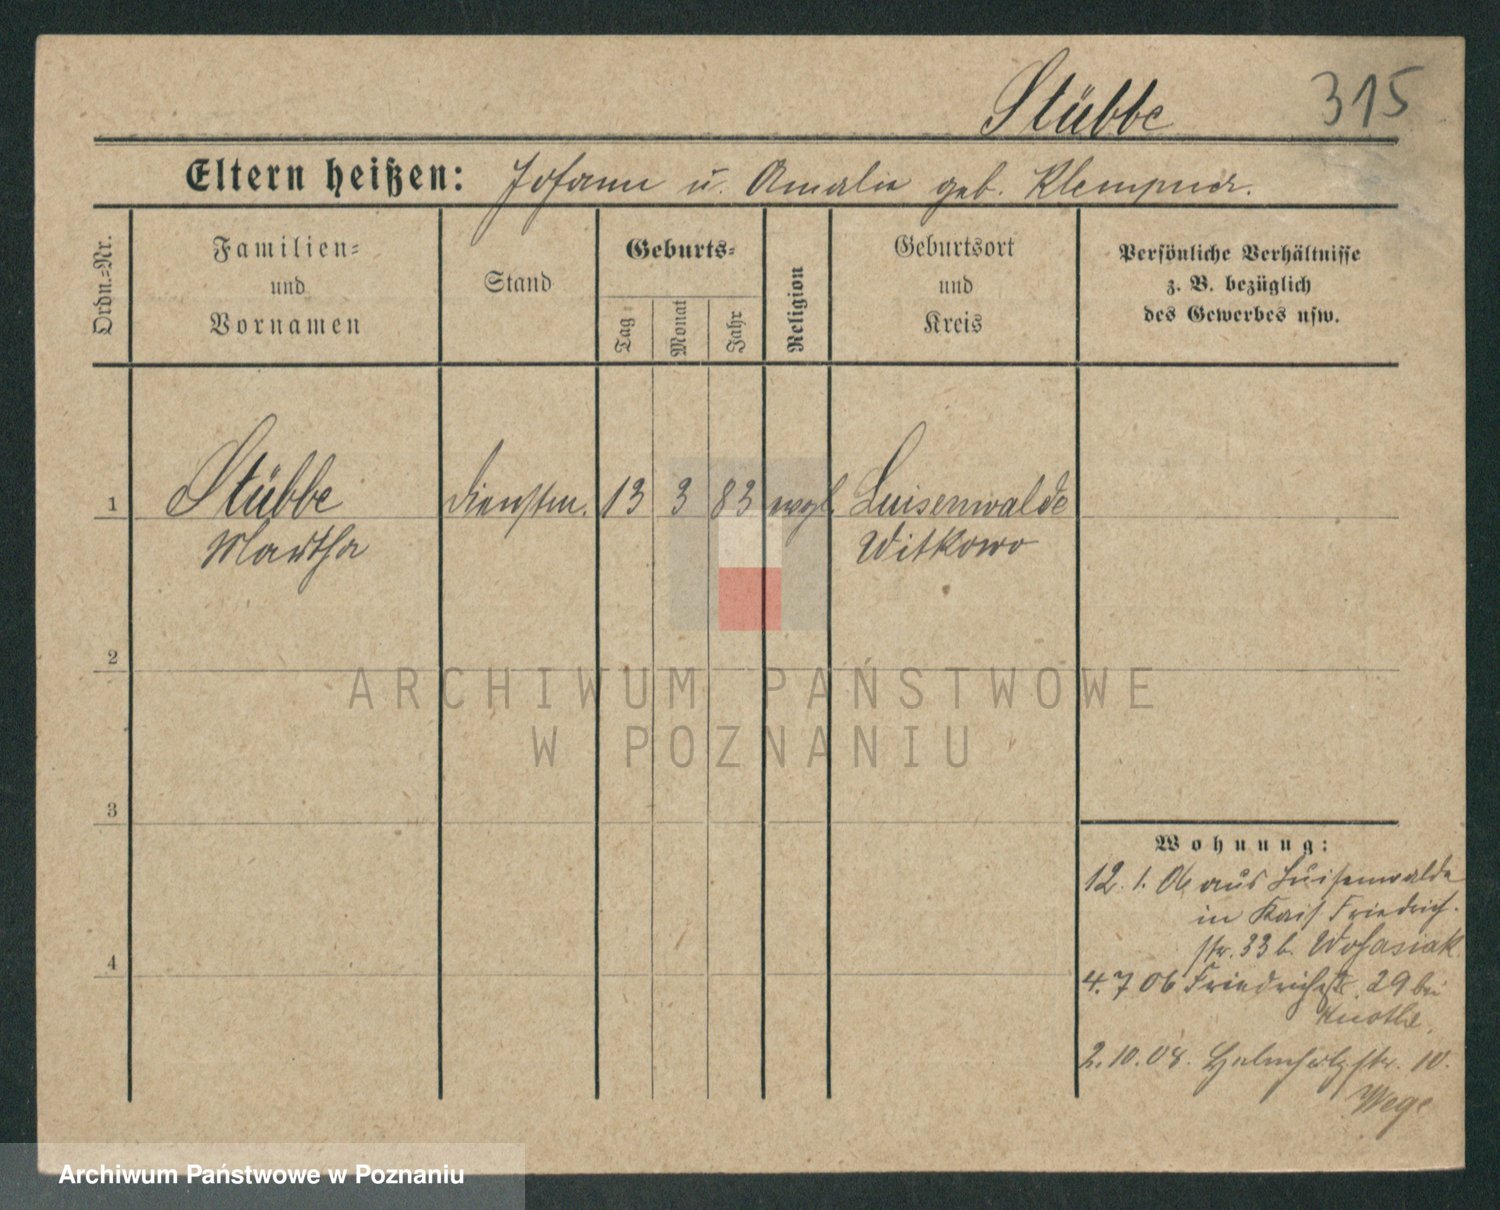 Stübbe 315
Eltern heißen: Johann u. Amalie geb. Klempner.
Ordn.-Nr.
Familien-
und
Vornamen
Stand
Geburts-
Tag
Monat
Jahr
Religion
Geburtsort
und
Kreis
Persönliche Verhältnisse
z. B. bezüglich
des Gewerbes usw.
1 Stübbe Dienstm. 13 3 83 evgl. Luisenwalde
Martha Witkowo
2
3
4
Wohnung:
12. 1. 06 aus Luisenwalde
in Kais Friedrich-
str. 33 b. Wohasiak
4. 7 06 Friedrichstr. 29 bei
Knothe.
2. 10. 08. str. 10.
Wege
ARCHIWUM PAŃSTWOWE
W POZNANIU
Archiwum Państwowe w Poznaniu